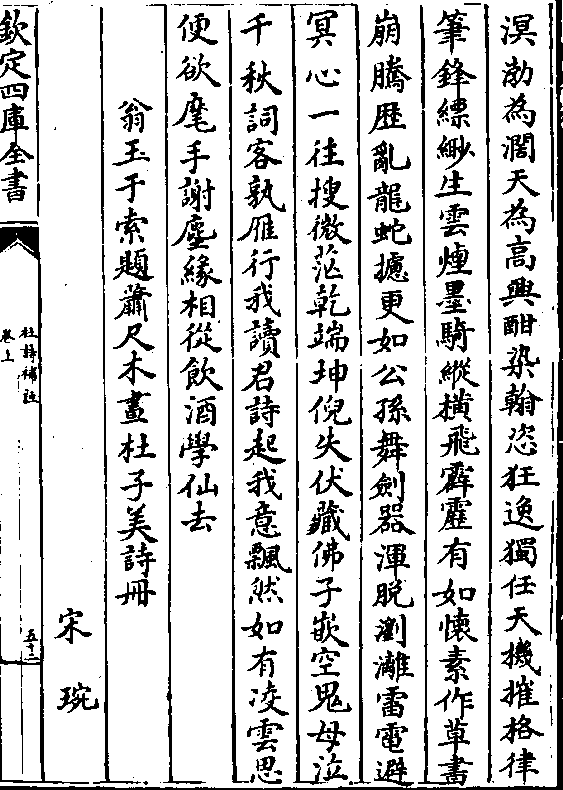 溟渤為濶天為高興酣染翰恣狂逸獨任天機摧格律
筆鋒縹緲生雲煙墨騎縱橫飛霹靂有如懷素作草書
崩騰歴亂龍蛇攄更如公孫舞劍器渾脫瀏灕雷電避
冥心一往搜微茫乾端坤倪失伏藏佛子嵌空鬼母泣
千秋詞客孰雁行我讀君詩起我意飄然如有凌雲思
便欲麾手謝塵緣相從飲酒學仙去
翁玉于索題蕭尺木畫杜子美詩冊
宋琬
欽定四庫全書
杜詩補註
卷上
五十二